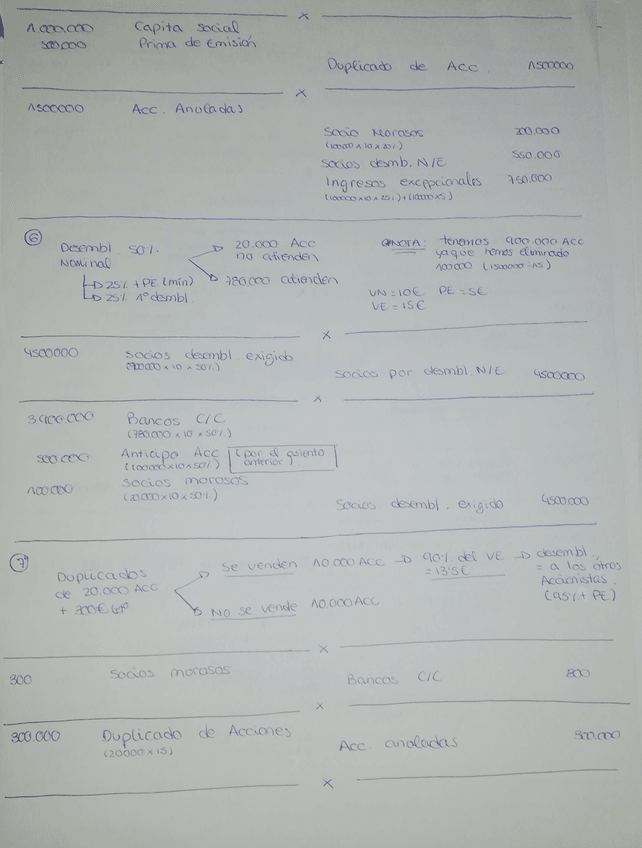 1.000.000 Capita social
500.000 Prima de Emisión
Duplicado de Acc. 1500000
1500000 Acc. Anuladas
Socio Morosos 200.000
(100000 x 10 x 20%)
Socios desmb. N/E 550.000
Ingresos excepcionales 750.000
(100000 x 10 x 25%) + (100000 x 5)
6
Desembl. 50% Nominal
25% + PE (mín)
25% 1º desmbl.
20.000 Acc no atienden
780.000 atienden
NOTA: tenemos 900.000 Acc
ya que hemos eliminado
100000 (1500000 : 15)
VN = 10€ PE = 5€
VE = 15€
4500000 Socios desembl exigido
(900000 x 10 x 50%)
Socios por desmbl. N/E 4500000
3900000 Bancos C/C
(780000 x 10 x 50%)
500.000 Anticipo Acc (por el asiento anterior)
(100000 x 10 x 50%)
100000 Socios morosos
(20000 x 10 x 50%)
Socios desembl. exigido 4500000
7º
Duplicados
de 20.000 Acc
+ 300€ gtº
Se venden 10.000 Acc → 90% del VE = 13'5€ → desembl. = a los otros Accicnistas.
NO se vende 10.000 Acc
300 Socios morosos
Bancos C/C 300
300.000 Duplicado de Acciones
(20000 x 15)
Acc. anuladas 300.000